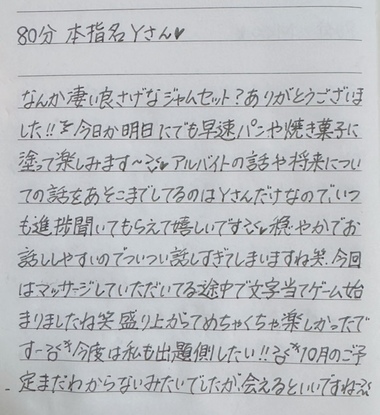 80分 本指名 Yさん♥
なんか凄い良さげなジャムセット?ありがとうございま
した!! 今日か明日にでも早速パンや焼き菓子に
塗って楽しみます〜♥ アルバイトの話や将来につい
ての話をあそこまでしてるのはYさんだけなので、いつ
も進捗聞いてもらえて嬉しいです♥ 穏やかでお
話ししやすいのでついつい話しすぎてしまいますね笑 今回
はマッサージしていただいてる途中で文字当てゲーム始
まりましたね笑 盛り上がってめちゃくちゃ楽しかったで
すー 今度は私も出題側したい!! 10月のご予
定まだわからないみたいでしたが、会えるといいですね